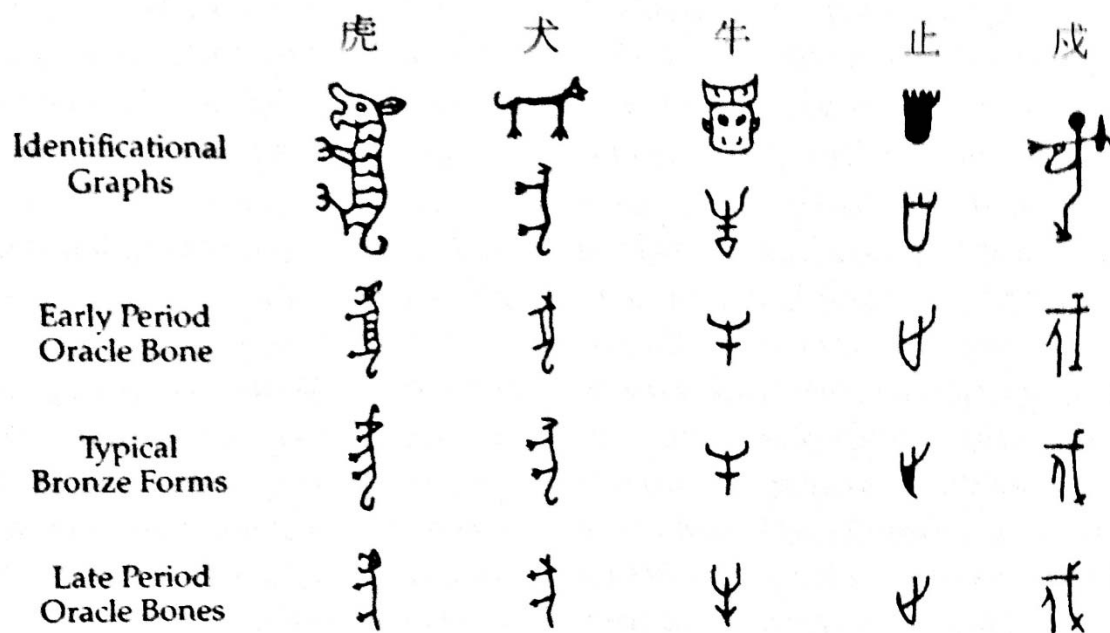 虎 犬 牛 止 戍
Identificational
Graphs
Early Period
Oracle Bone
Typical
Bronze Forms
Late Period
Oracle Bones